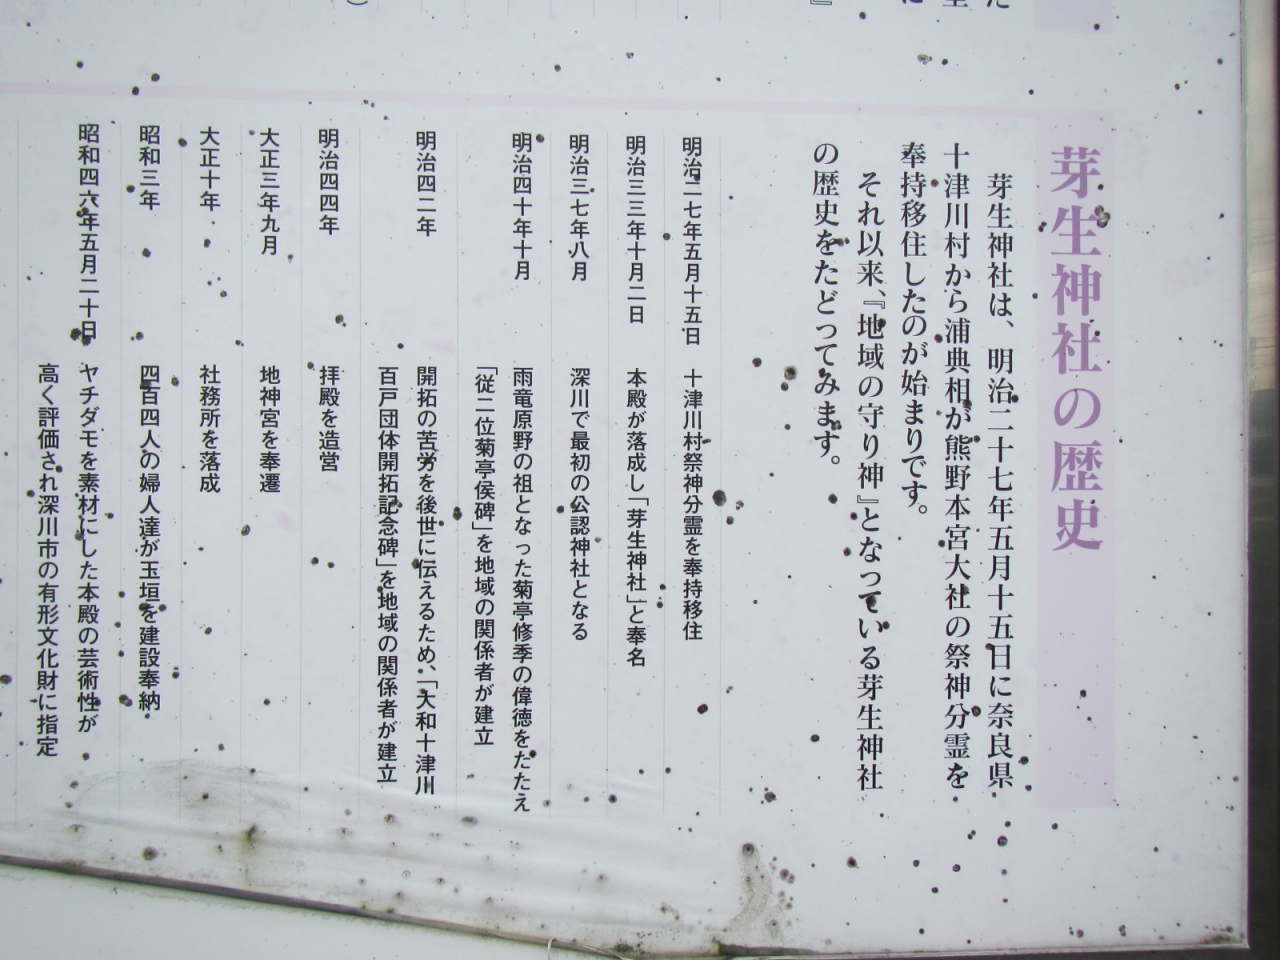 芽生神社の歴史
芽生神社は、明治二十七年五月十五日に奈良県
十津川村から浦典相が熊野本宮大社の祭神分霊を
奉持移住したのが始まりです。
それ以来、『地域の守り神』となっている芽生神社
の歴史をたどってみます。
明治二七年五月十五日 十津川村祭神分霊を奉持移住
明治三三年十月二日 本殿が落成し「芽生神社」と奉名
明治三七年八月 深川で最初の公認神社となる
明治四十年十月 雨竜原野の祖となった菊亭修季の偉徳をたたえ
「従二位菊亭侯碑」を地域の関係者が建立
明治四二年 開拓の苦労を後世に伝えるため、「大和十津川
百戸団体開拓記念碑」を地域の関係者が建立
明治四四年 拝殿を造営
大正三年九月 地神宮を奉遷
大正十年 社務所を落成
昭和三年 四百四人の婦人達が玉垣を建設奉納
昭和四六年五月二十日 ヤチダモを素材にした本殿の芸術性が
高く評価され深川市の有形文化財に指定